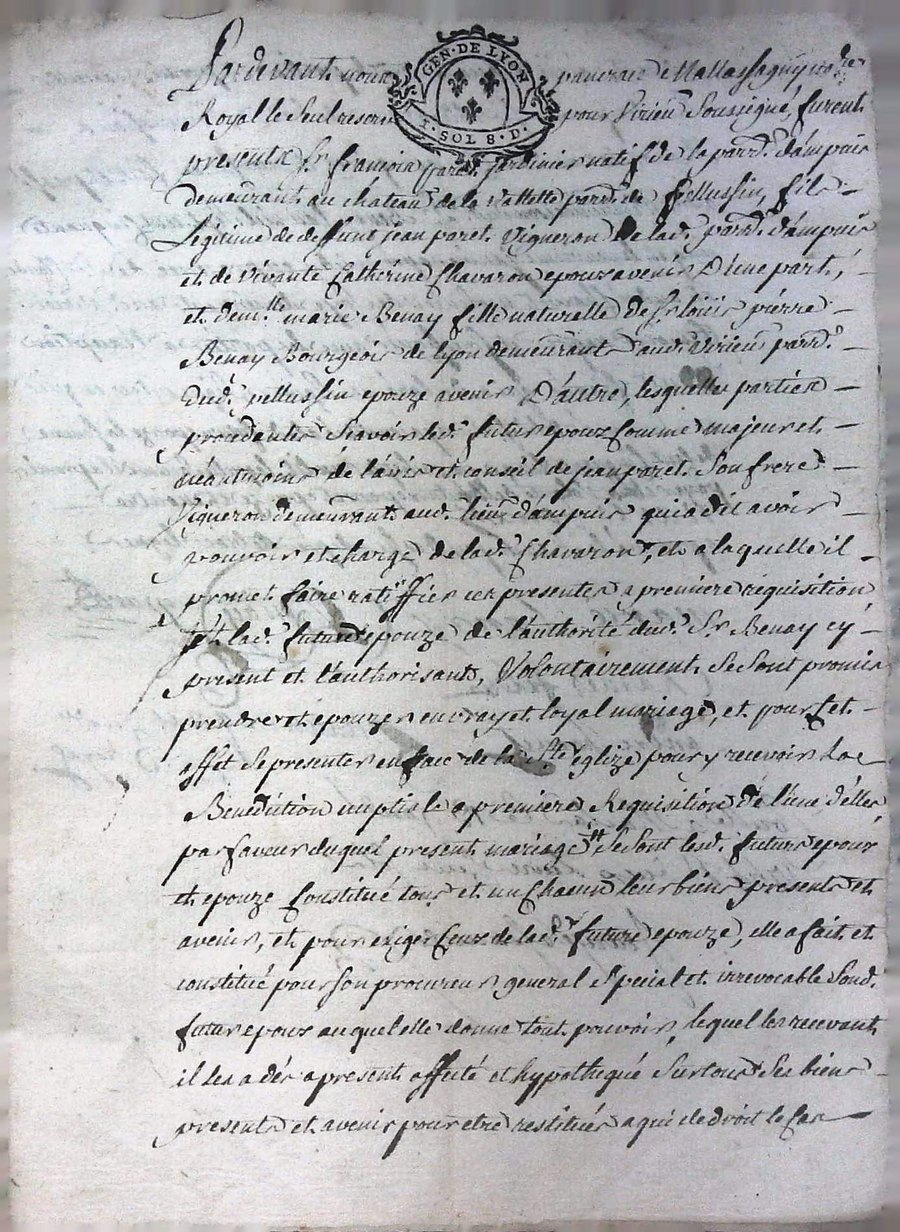 GEN. DE LYON
SOL 8. D.
Pardevant nous pancrace Mallassagny no.re
Royal le Seul reservé pour Virieu Soussigné, furent
presents Sr. francois paret jardinier natif de la parr.e d'ampuis
demeurant au chateau de la Vallette parr.e de pellussin, fils
Legitime de deffunt jean paret Vigneron de lad.e parr.e d'ampuis
et de vivante Catherine Chavaron epoux avenir D'une part,
et dem.lle marie Benay fille naturelle de Sr. loüis pierre
Benay Bourgeois de lyon demeurants aud. Virieu parr.e
dud. pellussin epouze avenir D'autre, lesquelles parties
procedantes Scavoir led. futur epoux Comme majeur et
néantmoins de l'avis et conseil de jean paret Son frere
Vigneron demeurant aud. lieu d'ampuis qui a dit avoir
pouvoir et charge de lad. Chavaron, et a laquelle il
promet faire ratiffier ces presentes a premiere requisition
et lad. future epouze de l'authorité dud. Sr. Benay cy
present et l'authorisant, Volontairement Se Sont promis
prendre et epouzer en vray et loyal mariage, et pour Cet
effet Se presenter en face de la Ste église pour y recevoir La
Benediction nuptialle a premiere Requisition de l'une d'elles
par faveur duquel present mariage Se Sont lesd. futurs epoux
et epouze Constitué tous et un Chacun leurs biens presents et
avenir, et pour exiger Ceux de lad. future epouze, elle a fait et
constitué pour Son procureur general Special et irrevocable Sond.
futur epoux auquel elle donne tout pouvoir, lequel les recevant
il les a dés apresent affecté et hypothequé Sur tous Ses biens
presents et avenir pour etre restitués a qui de droit le Cas